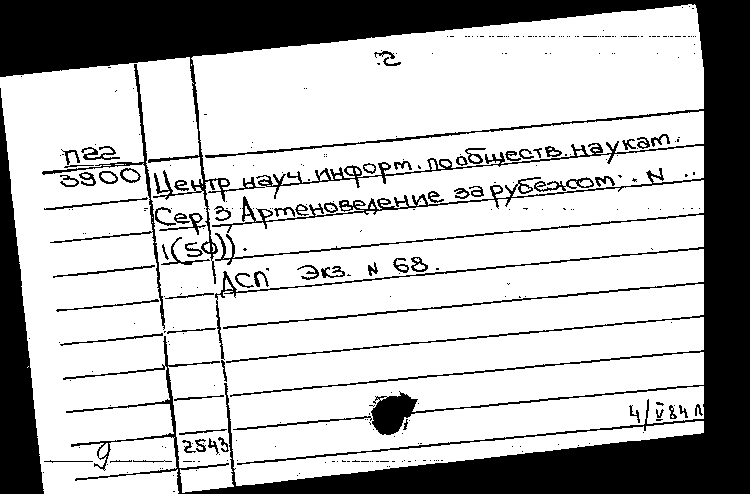 2
п22
3900 Центр науч. информ. по обществ. наукам.
Сер. 3 Арменоведение за рубежом; . N ..
1(50)).
ДСП Экз. N 68.
4/V 84 л
9 2543